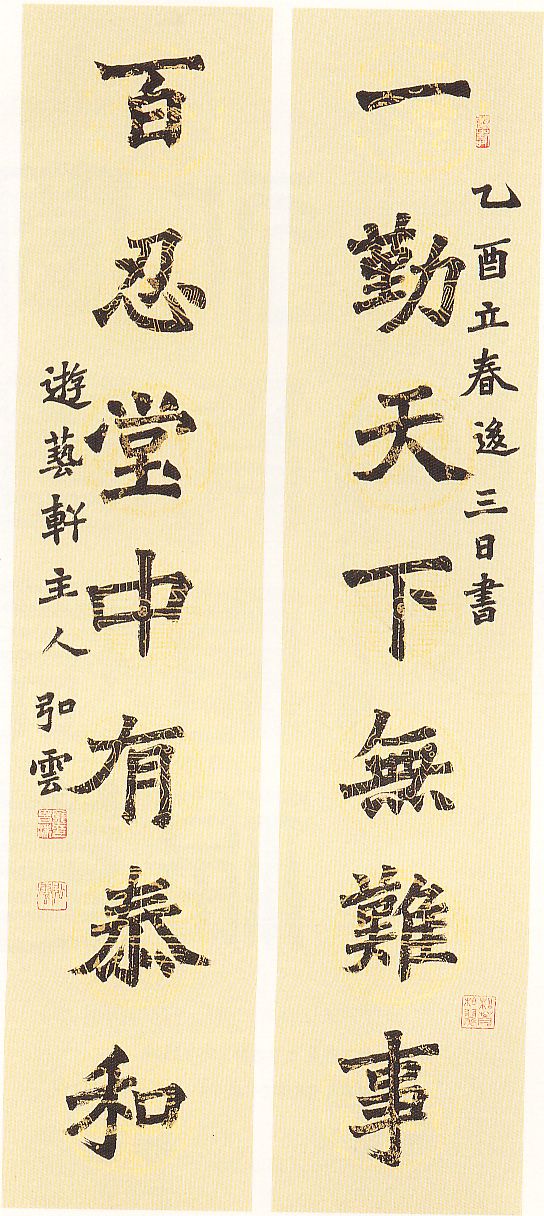 乙酉立春後三日書
一勤天下無難事
百忍堂中有泰和
遊藝軒主人 弘雲